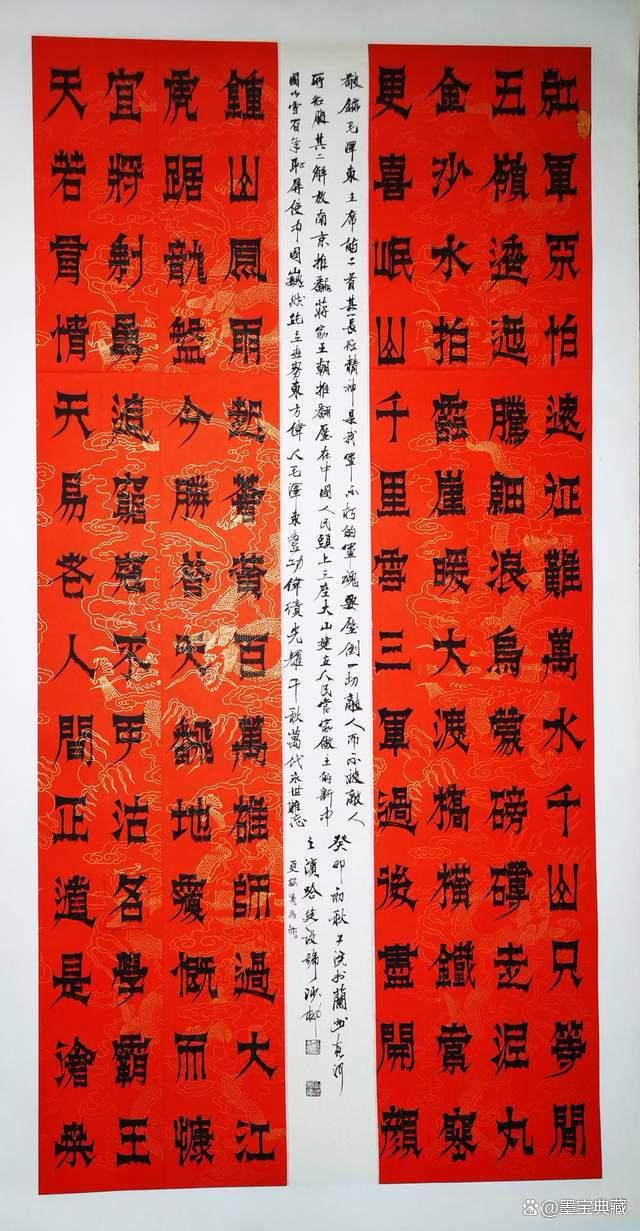 紅軍不怕遠征難萬水千山只等閒
五嶺逶迤騰細浪烏蒙磅礴走泥丸
金沙水拍雲崖暖大渡橋橫鐵索寒
更喜岷山千里雪三軍過後盡開顏
敬錄毛澤東主席詩二首其一長征精神是我軍不朽的軍魂要壓倒一切敵人而不被敵人
所征服其二解放南京推翻蔣家王朝推翻壓在中國人民頭上三座大山建立人民當家做主的新中
國以雪百年恥辱使中國巍然屹立世界東方偉人毛澤東豐功偉績光耀千秋萬代永世難忘
癸卯初秋
鍾山風雨起蒼黃百萬雄師過大江
虎踞龍盤今勝昔天翻地覆慨而慷
宜將剩勇追窮寇不可沽名學霸王
天若有情天易老人間正道是滄桑
墨宝典藏